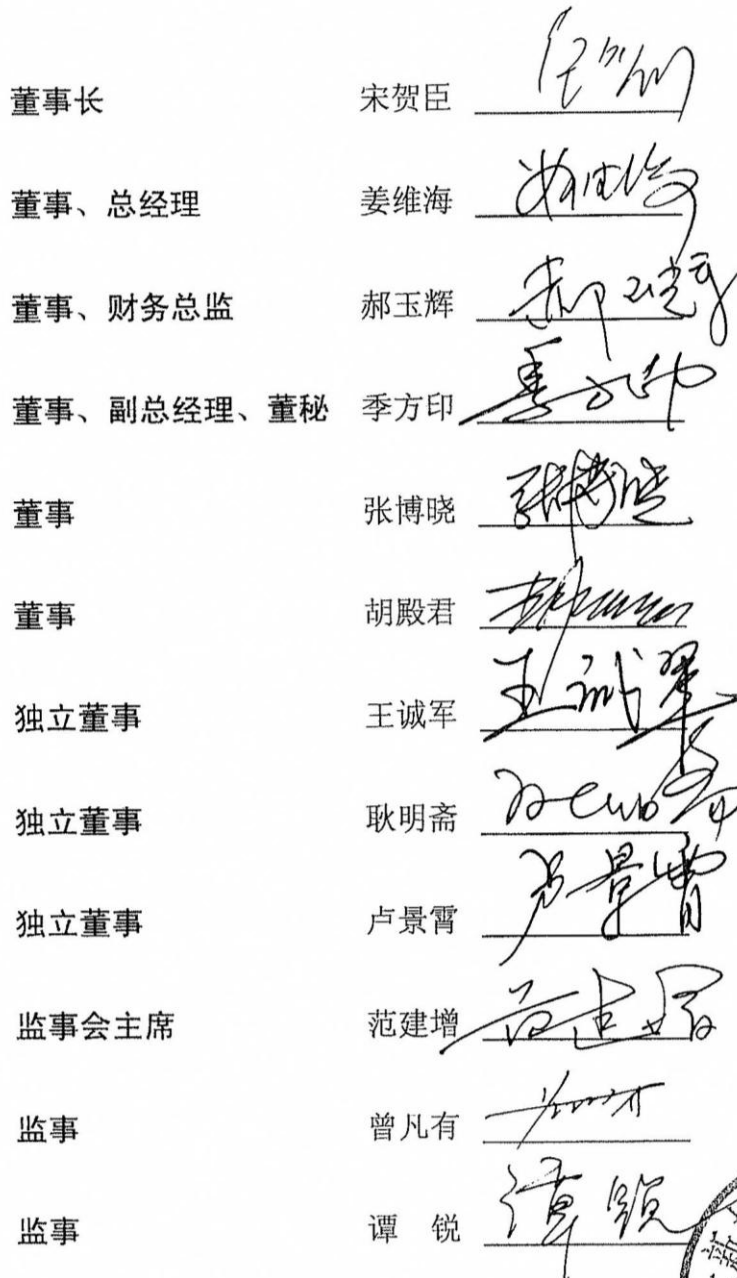 董事长 宋贺臣
董事、总经理 姜维海
董事、财务总监 郝玉辉
董事、副总经理、董秘 季方印 季方印
董事 张博晓 张博晓
董事 胡殿君
独立董事 王诚军 王诚军
独立董事 耿明斋
独立董事 卢景霄 卢景霄
监事会主席 范建增 范建增
监事 曾凡有
监事 谭 锐 谭锐